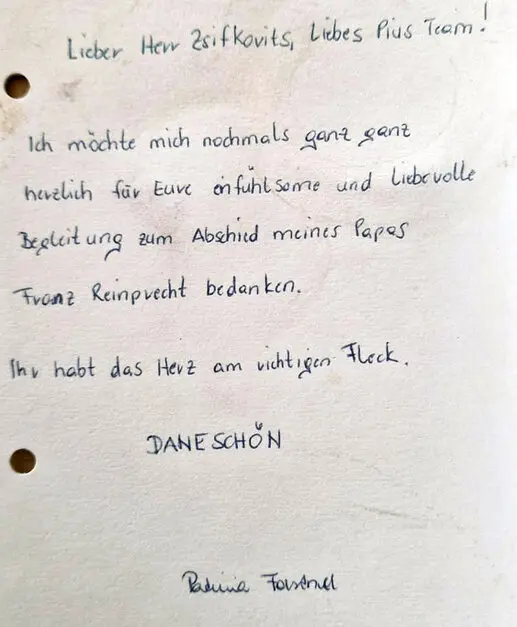 Lieber Herr Zsifkovits, Liebes Pius Team!
Ich möchte mich nochmals ganz ganz
herzlich für Eure einfühlsame und liebevolle
Begleitung zum Abschied meines Papas
Franz Reinprecht bedanken.
Ihr habt das Herz am richtigen Fleck.
DANKESCHÖN